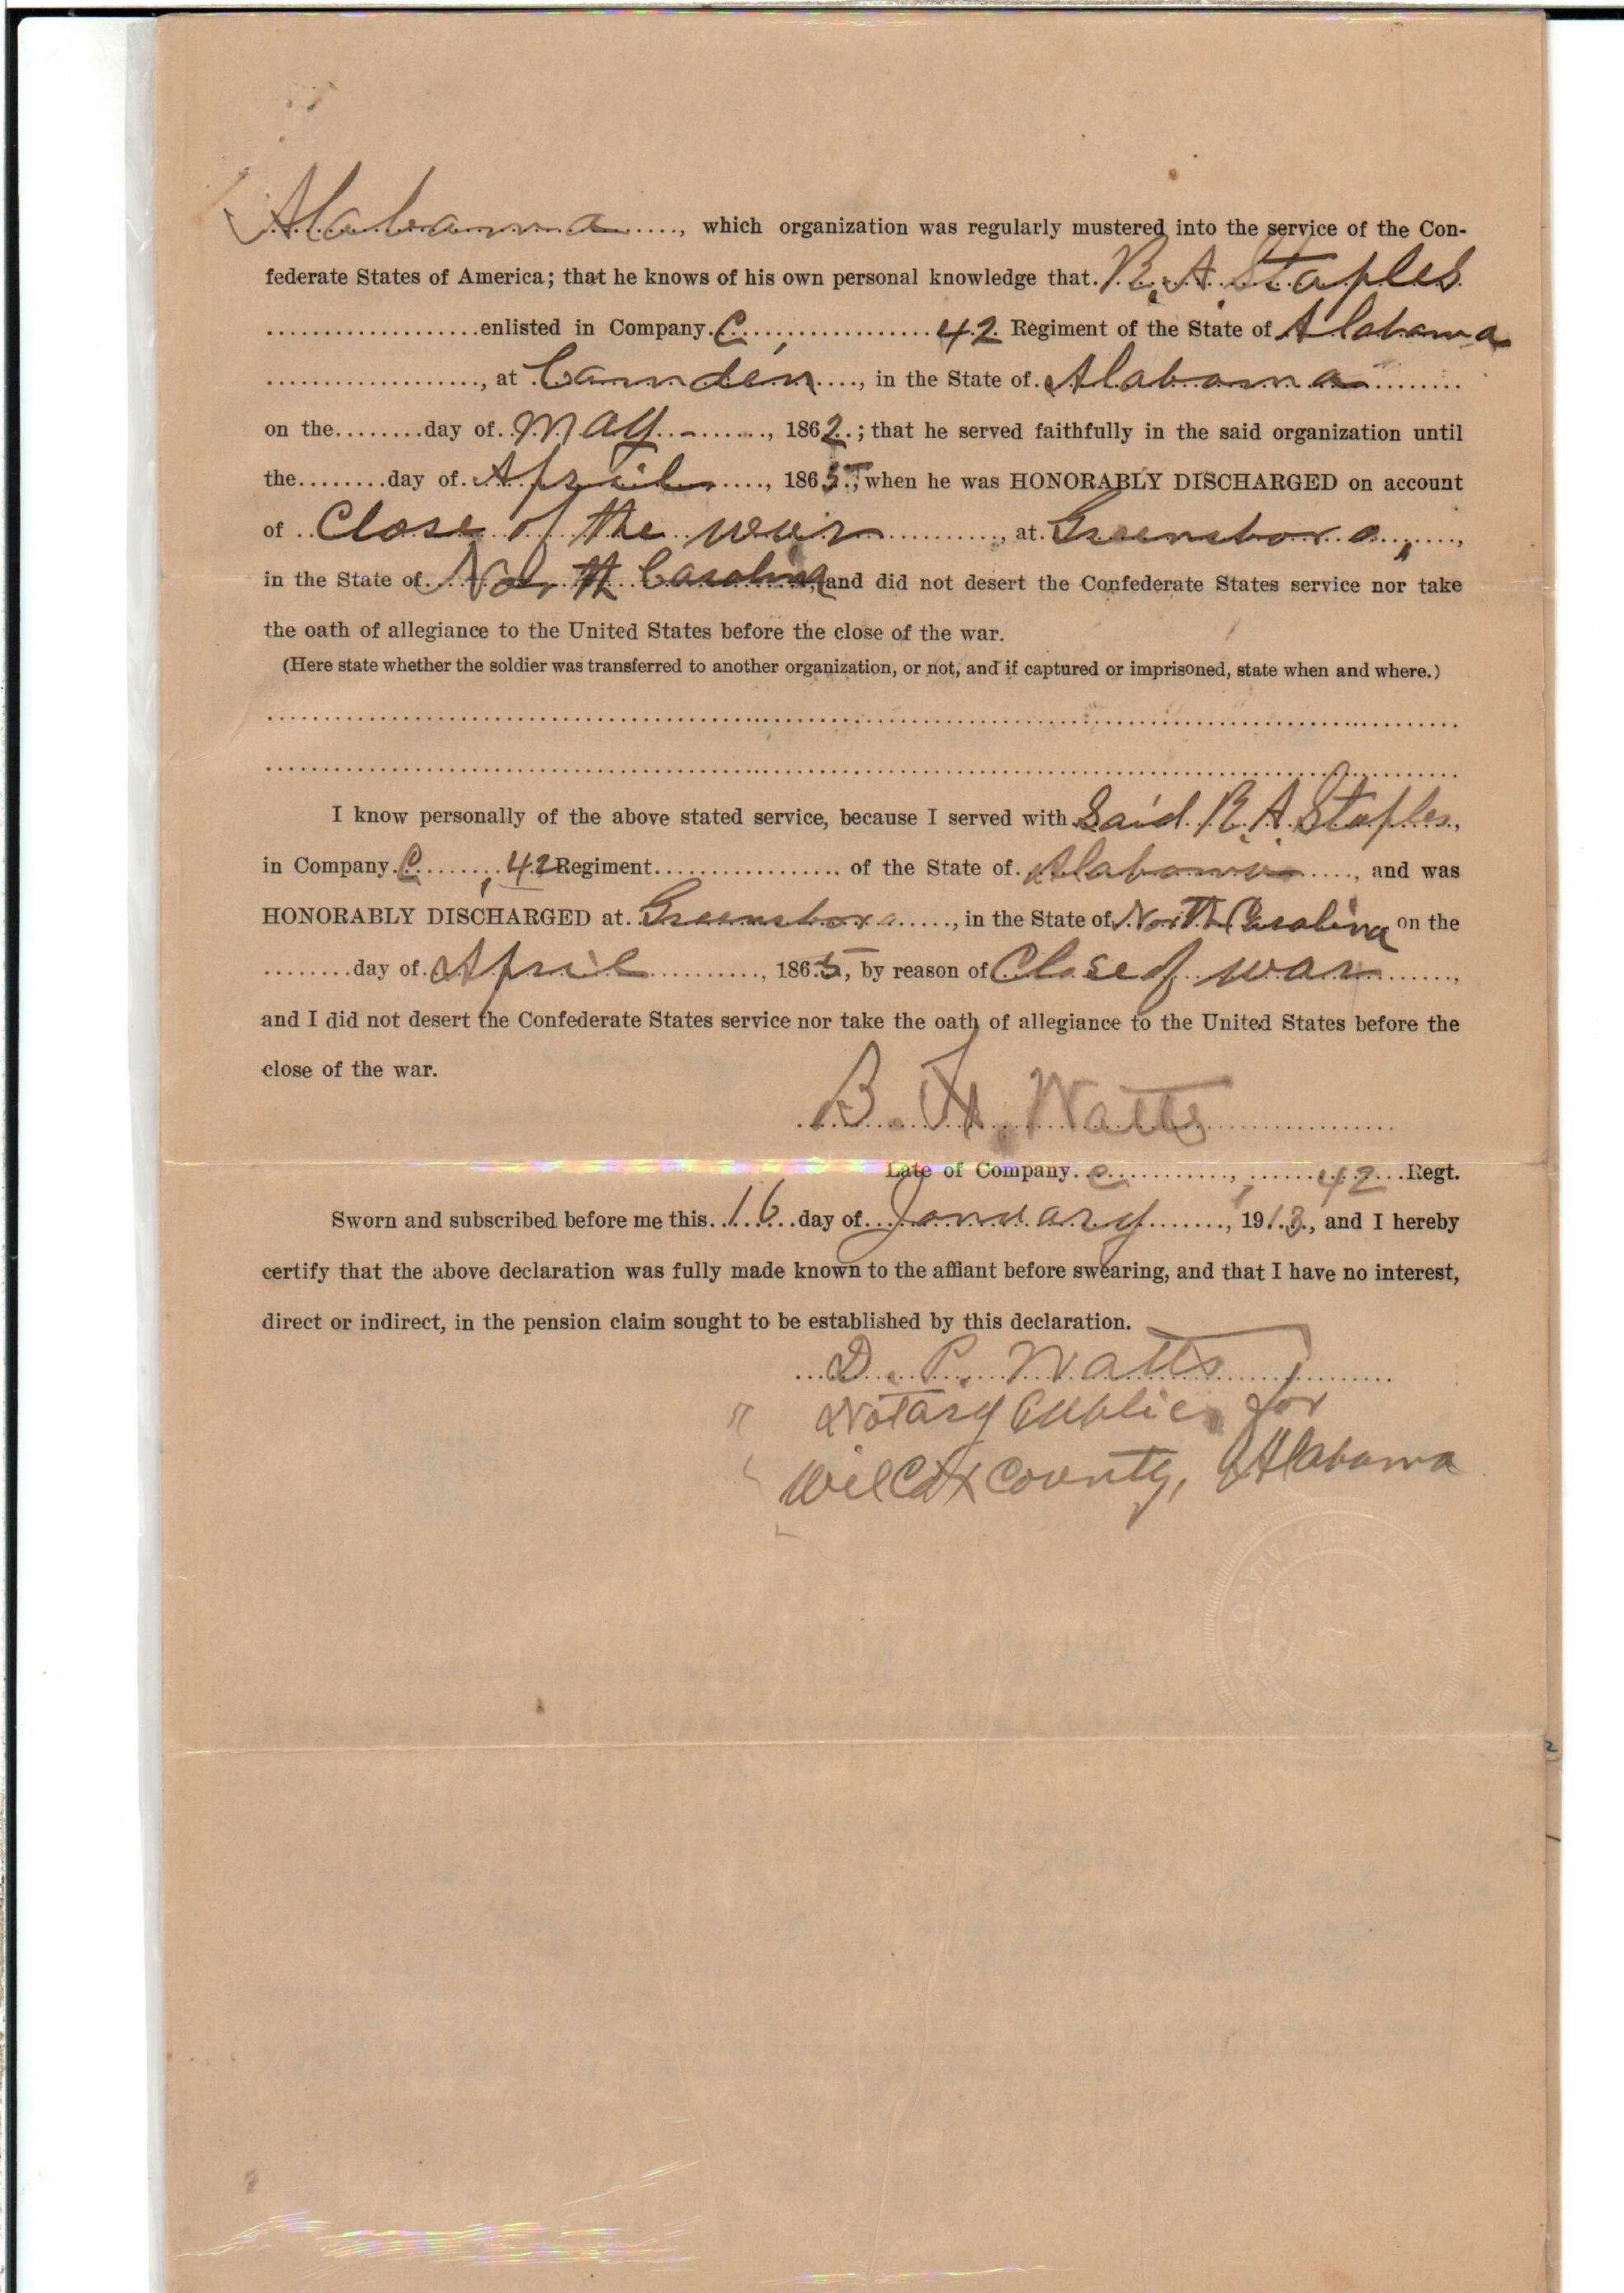 Alabama, which organization was regularly mustered into the service of the Con-
federate States of America; that he knows of his own personal knowledge that R. A. Staples
enlisted in Company C, 42 Regiment of the State of Alabama
, at Camden, in the State of Alabama
on the day of May, 1862; that he served faithfully in the said organization until
the day of April, 1865, when he was HONORABLY DISCHARGED on account
of Close of the war, at Greensboro,
in the State of North Carolina, and did not desert the Confederate States service nor take
the oath of allegiance to the United States before the close of the war.
(Here state whether the soldier was transferred to another organization, or not, and if captured or imprisoned, state when and where.)
I know personally of the above stated service, because I served with Said R. A. Staples,
in Company C, 42 Regiment of the State of Alabama, and was
HONORABLY DISCHARGED at Greensboro, in the State of North Carolina on the
day of April, 1865, by reason of Close of war,
and I did not desert the Confederate States service nor take the oath of allegiance to the United States before the
close of the war.
B. H. Watts
Late of Company C, 42 Regt.
Sworn and subscribed before me this 16 day of January, 1913, and I hereby
certify that the above declaration was fully made known to the affiant before swearing, and that I have no interest,
direct or indirect, in the pension claim sought to be established by this declaration.
D. P. Watts
Notary Public for
Wilcox County, Alabama